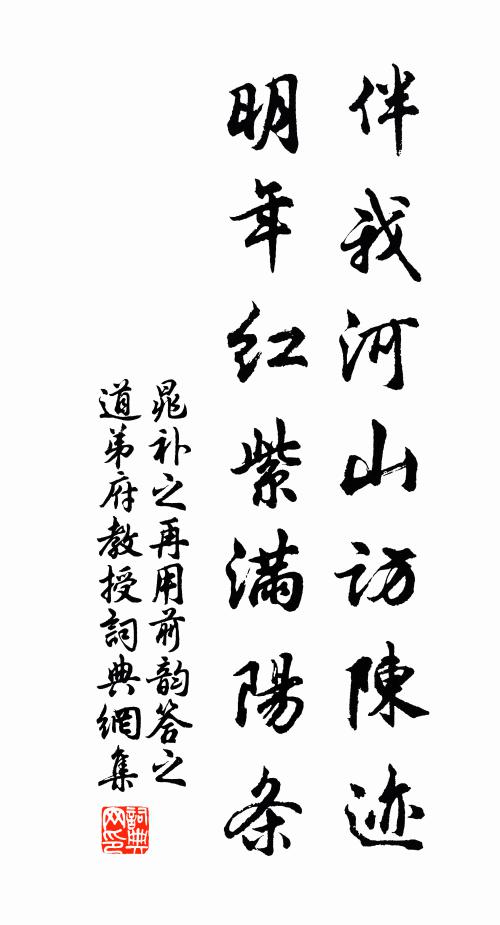 伴我河山訪陳迹
明年红紫滿陽条
晁补之再用前韵答之
道弟府教授詞典網集
詞典
网印